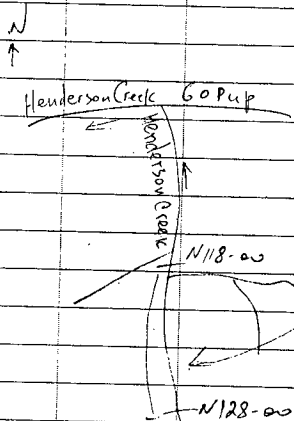 N
Henderson Creek 60 Pup
Henderson Creek
N118-00
N128-00